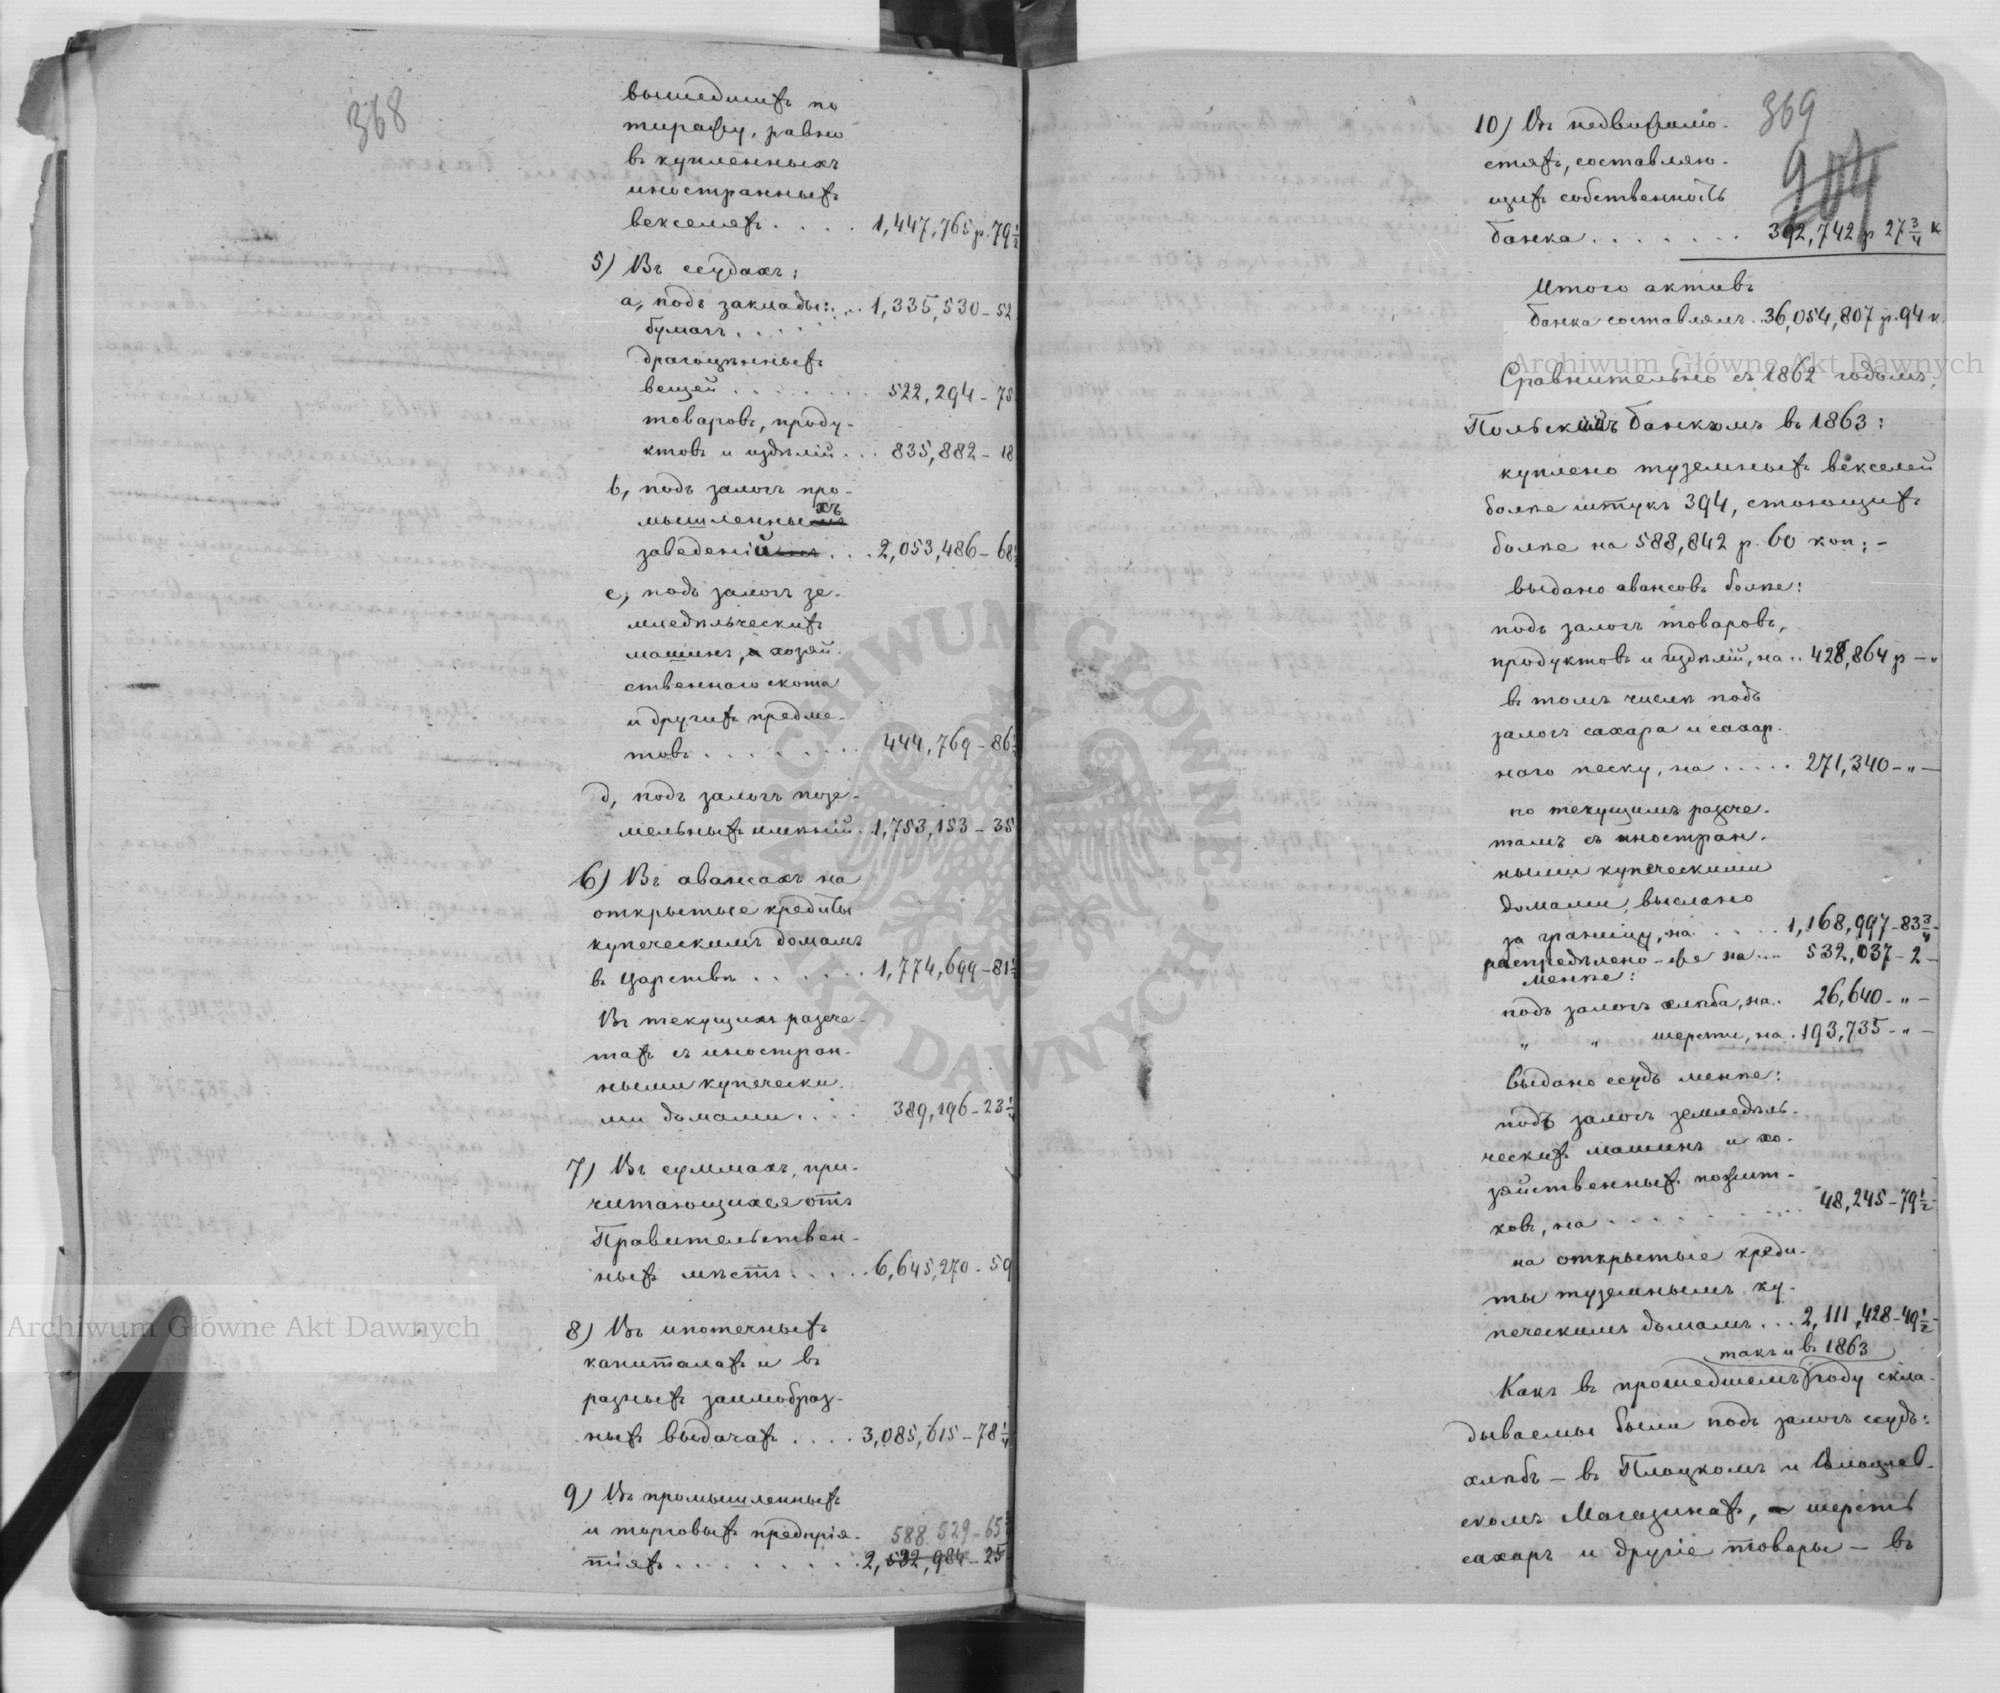 368
вышедшихъ по
тиражу, равно
въ купленныхъ
иностранныхъ
векселяхъ . . . . 1,447,765 р. 79 1/2
5) Въ ссудахъ:
а, подъ заклады: . . 1,335,530 – 52
бумагъ . . . .
драгоцѣнныхъ
вещей . . . . . . . 522,294 – 75
товаровъ, проду-
ктовъ и издѣлій . . . 835,882 – 18
b, подъ залогъ про-
мышленныхъ
заведеній . . . 2,053,486 – 68
с, подъ залогъ зе-
мледѣльческихъ
машинъ, хозяй-
ственнаго скота
и другихъ предме-
товъ . . . . . . . . 444,769 – 86
d, подъ залогъ позе-
мельныхъ имѣній . 1,753,153 – 35
6) Въ авансахъ на
открытые кредиты
купеческимъ домамъ
въ Царствѣ . . . . . . 1,774,699 – 81
Въ текущихъ разсче-
тахъ съ иностран-
ными купечески
ми домами . . . . 389,196 – 23
7) Въ суммахъ, при-
читающихся отъ
Правительствен-
ныхъ мѣстъ . . . . . 6,645,270 – 59
8) Въ ипотечныхъ
капиталахъ и въ
разныхъ заимообраз-
ныхъ выдачахъ . . . . 3,085,615 – 78 1/4
9) Въ промышленныхъ
и торговыхъ предпрія- 588.529 – 65
тіяхъ . . . . . . . . . 2,532,984 – 25
369
904
10) Въ недвижимо-
стяхъ, составляю-
щихъ собственность
банка . . . . . . . 392,742 р 27 3/4 к
Итого активъ
банка составлялъ . . 36,054,807 р. 94 к.
Сравнительно съ 1862 годомъ,
Польскимъ банкомъ въ 1863:
куплено туземныхъ векселей
болѣе штукъ 394, стоющихъ
болѣе на 588,842 р. 60 коп; –
выдано авансовъ болѣе:
подъ залогъ товаровъ,
продуктовъ и издѣлій, на . . 428,864 р – „
въ томъ числѣ подъ
залогъ сахара и сахар-
наго песку, на . . . . . 271,340 – „ –
по текущимъ разсче-
тамъ съ иностран-
ными купеческими
домами, выслано
за границу, на . . . . . 1,168,997 – 83 3/4 –
распредѣлено-же на . . . 532,037 – 2 –
менѣе:
подъ залогъ хлѣба, на . 26,640 – „ –
„ „ шерсти, на . 193,735 – „ –
Выдано ссудъ менѣе:
подъ залогъ земледѣль-
ческихъ машинъ и хо-
зяйственныхъ пожит-
ковъ, на . . . . . . . . . 48,245 – 79 1/2 –
на открытые креди-
ты туземнымъ ку-
печескимъ домамъ . . . 2,111,428 – 49 1/2 –
такъ и въ 1863
Какъ въ прошедшемъ году скла-
дываемы были подъ залогъ ссудъ:
хлѣбъ – въ Плоцкомъ и Влоцлав-
скомъ Магазинахъ, – шерсть
сахаръ и другіе товары – въ
Archiwum Główne Akt Dawnych
Archiwum Główne Akt Dawnych
ARCHIWUM GŁÓWNE AKT DAWNYCH